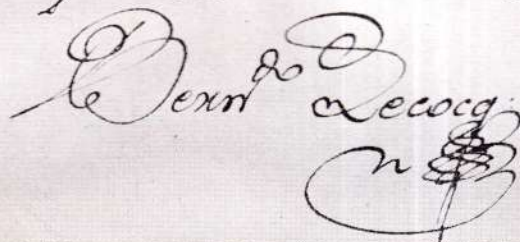 Berndo Lecocq